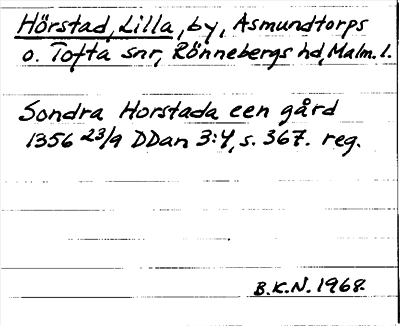 Hörstad, Lilla, by, Asmundtorps
o. Tofta snr, Rönnebergs hd, Malm. l.
Sondra Horstada een gård
1356 23/9 DDan 3:4, s. 367. reg.
B.K.N. 1968.